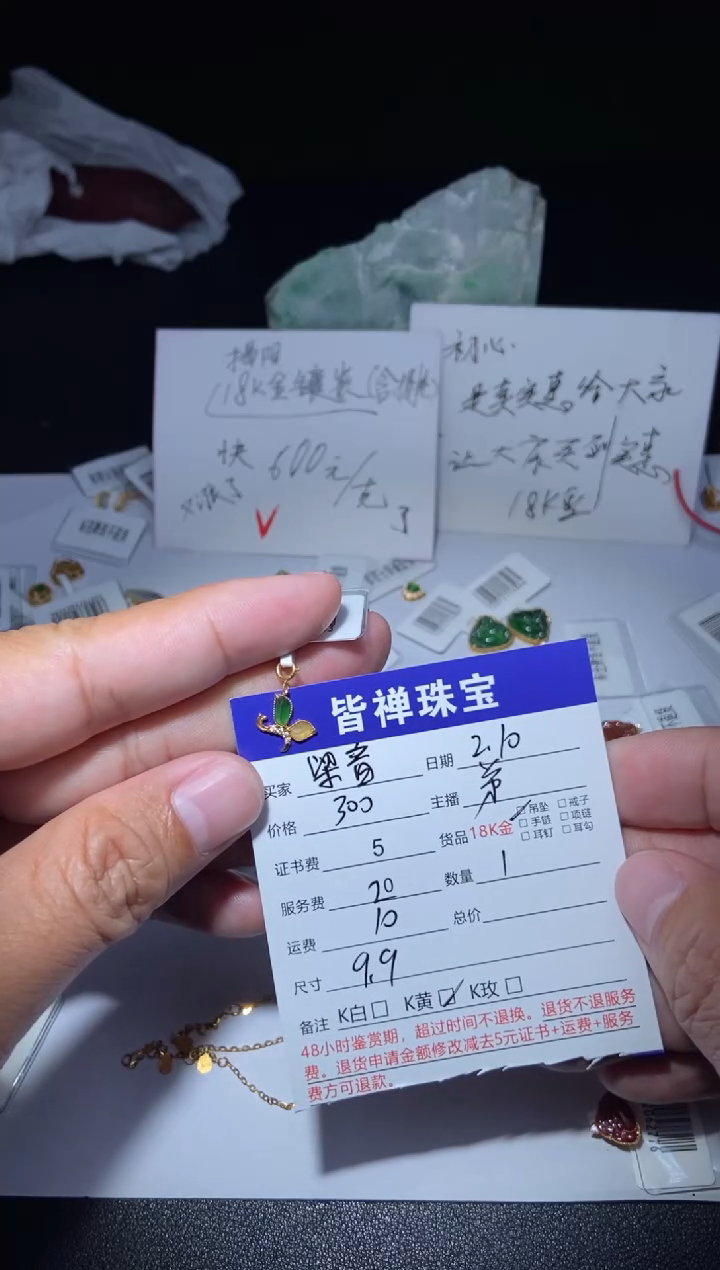 揭阳
18K金镶嵌(含挑)
快 600元/克
又涨了 了
初心.
是卖实惠给大家
让大家买到实惠
18K金
皆禅珠宝
买家 梁音 日期 2.10
价格 300 主播
证书费 5 货品18K金 吊坠 戒子
手链 项链
耳钉 耳勾
服务费 20 数量 1
运费 10 总价
尺寸 9.9
备注 K白 K黄 K玫
48小时鉴赏期，超过时间不退换。退货不退服务
费。退货申请金额修改减去5元证书+运费+服务
费方可退款。